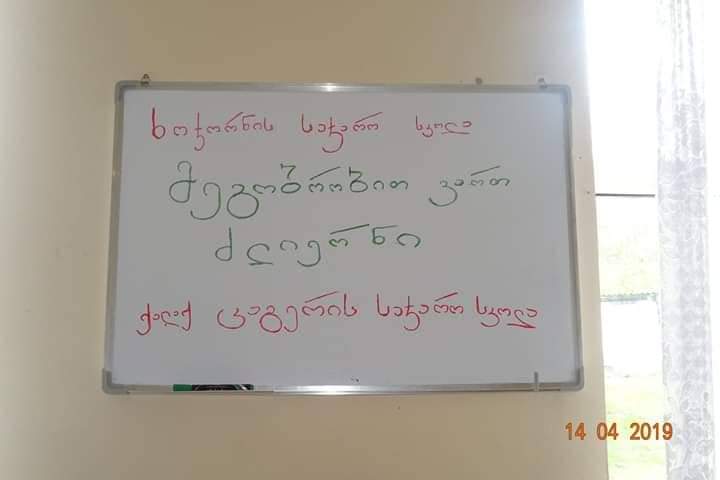 ხოჭორნის საჯარო სკოლა
მეგობრობით ვართ
ძლიერნი
ქალაქ ცაგერის საჯარო სკოლა
14 04 2019